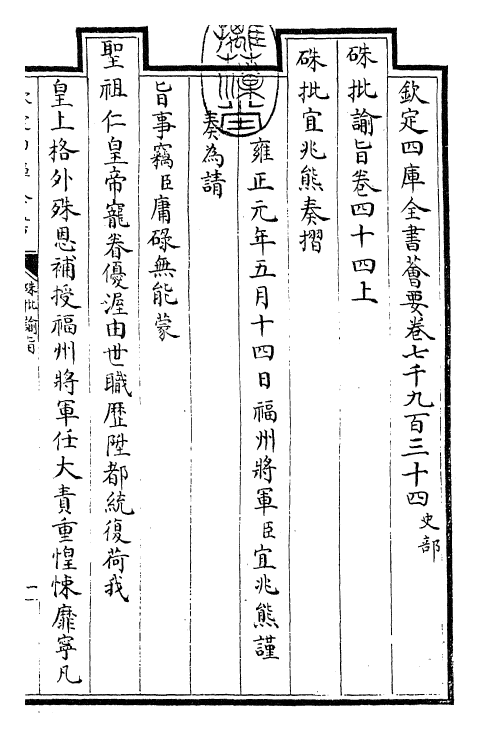 欽定四庫全書薈要卷七千九百三十四 史部
硃批諭旨卷四十四上
硃批宜兆熊奏摺
雍正元年五月十四日福州將軍臣宜兆熊謹
奏為請
旨事竊臣庸碌無能蒙
聖祖仁皇帝寵眷優渥由世職歷陞都統復荷我
皇上格外殊恩補授福州將軍任大責重惶悚靡寧凡
硃批諭旨
一